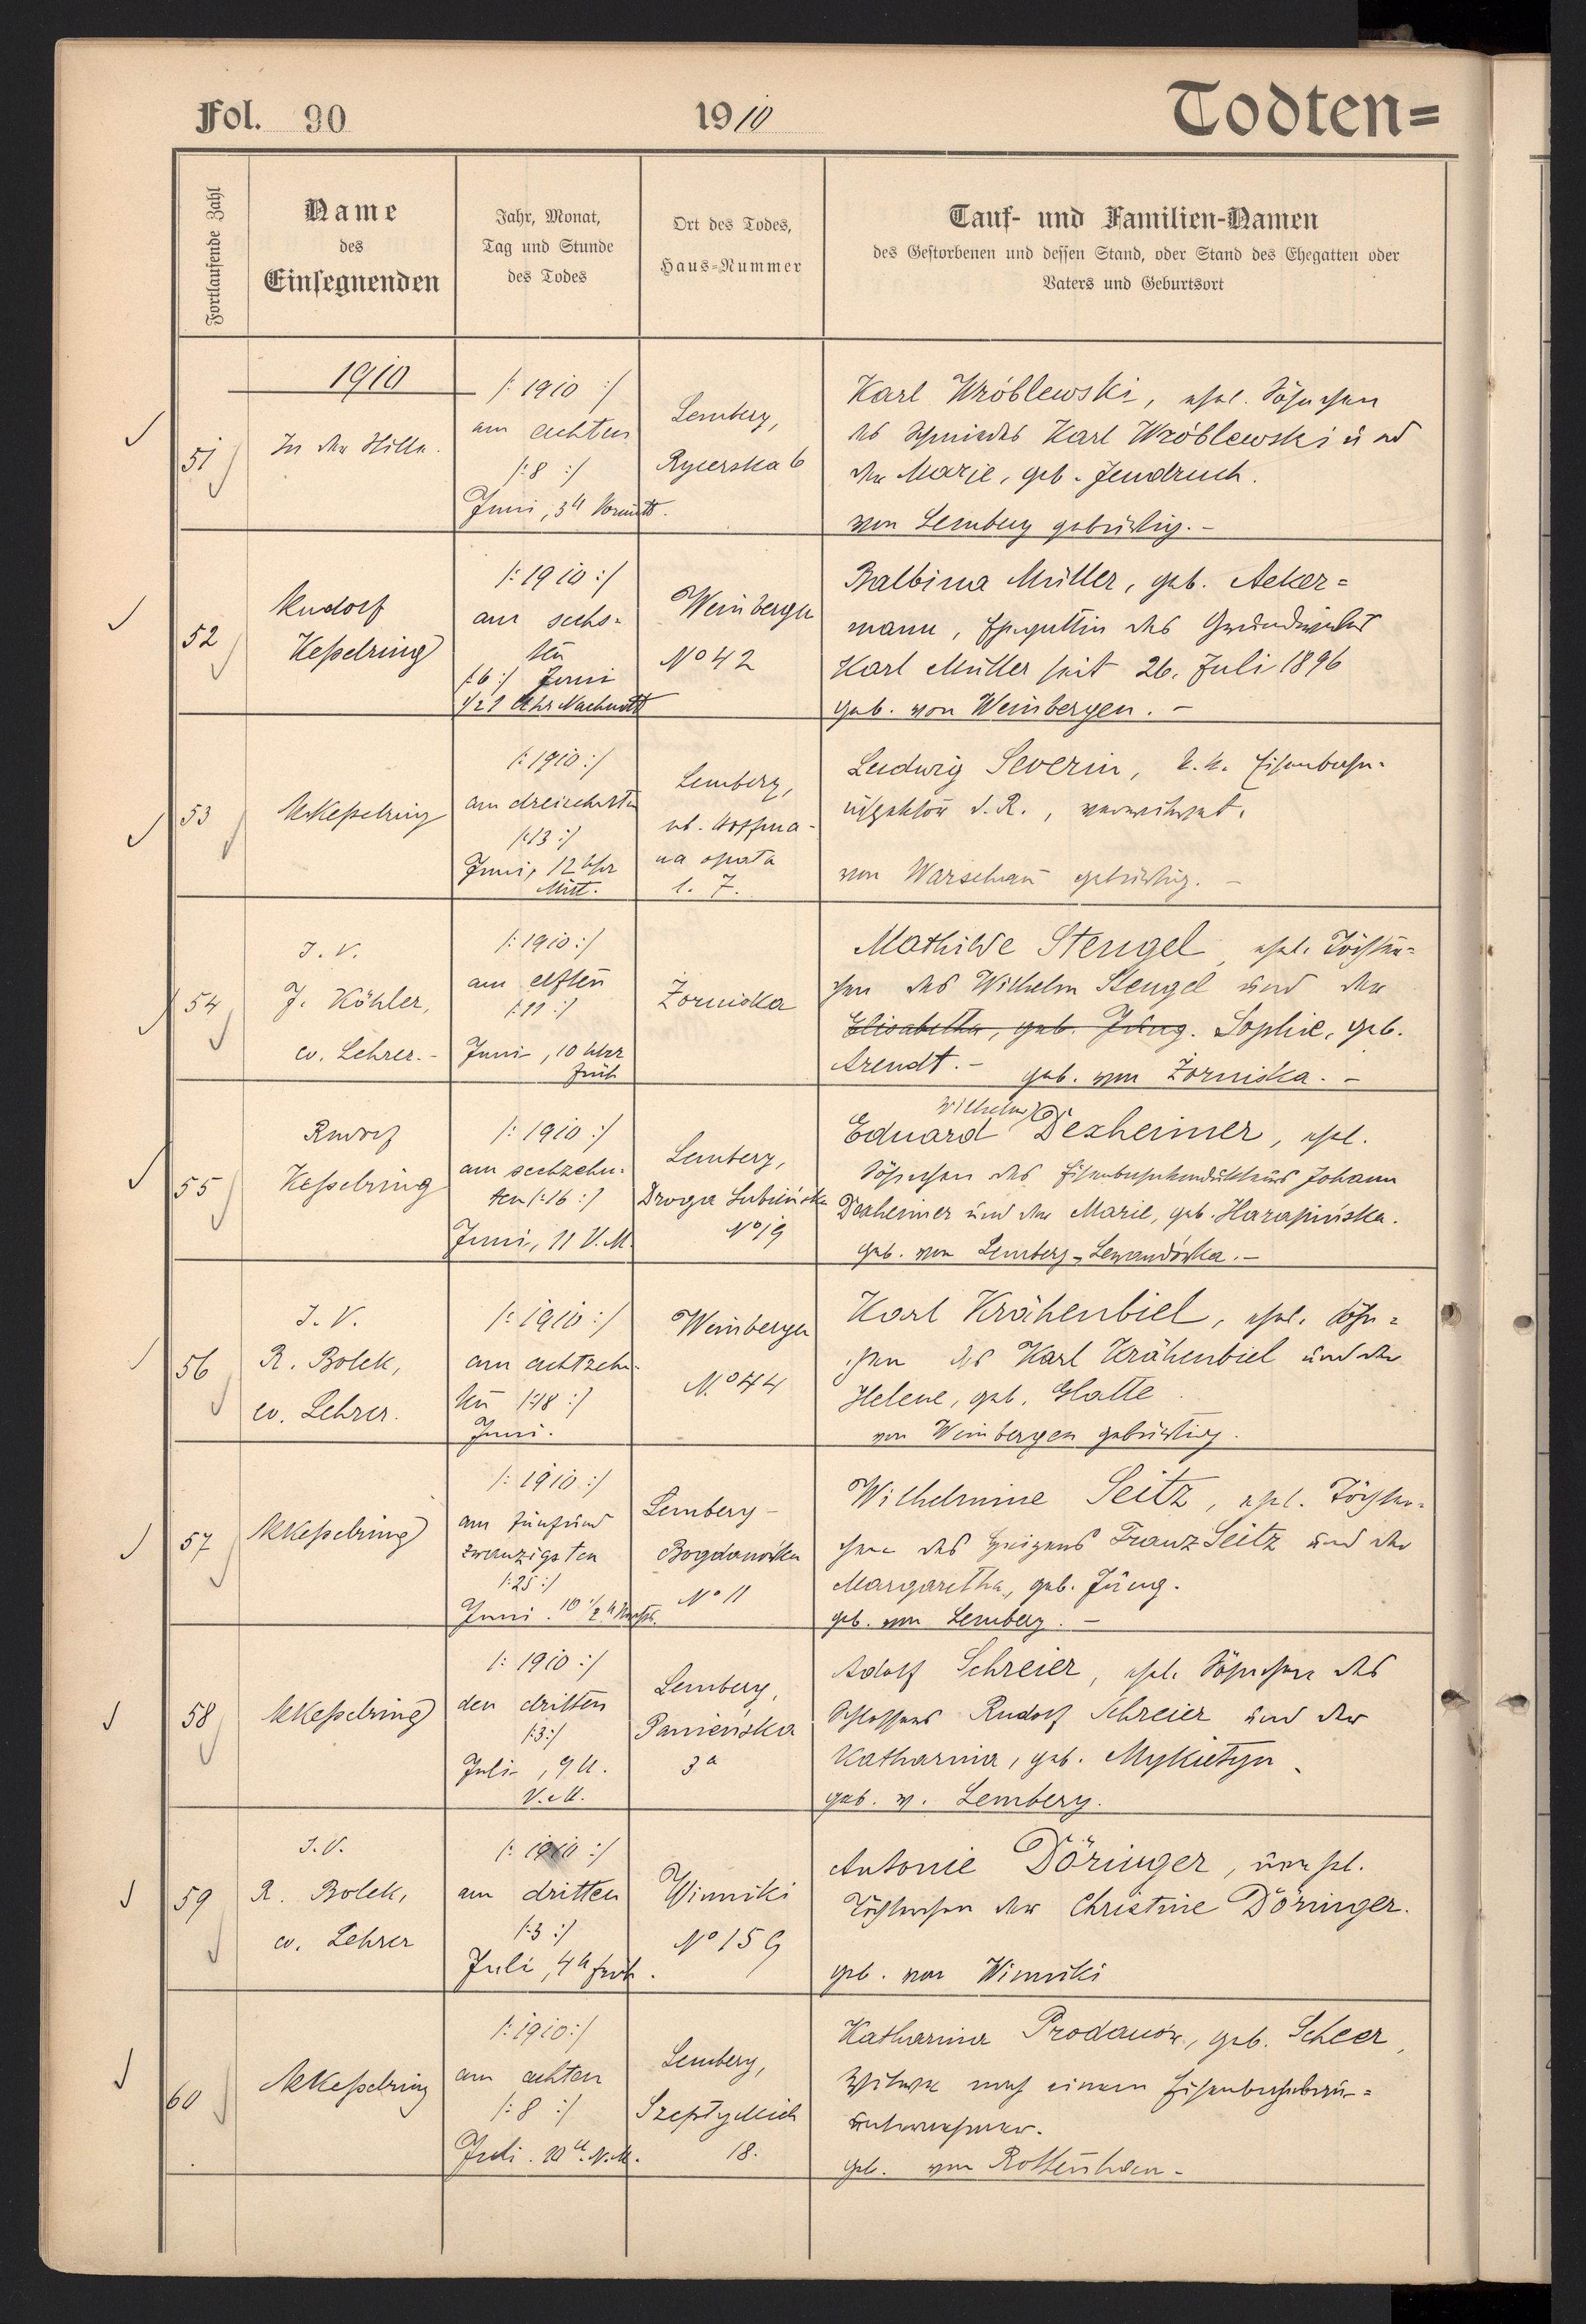 Fol. 90
1910
Todten=
Fortlaufende Zahl
Name
des
Einsegnenden
Jahr, Monat,
Tag und Stunde
des Todes
Ort des Todes,
Haus-Nummer
Tauf- und Familien-Namen
des Gestorbenen und dessen Stand, oder Stand des Ehegatten oder
Vaters und Geburtsort
1910
51
In der Stille.
/: 1910 :/
am achten
/: 8 :/
Juni, 3 U Vormitt.
Lemberg,
Rycerska 6
Karl Wróblewski, ehel. Söhnchen
des Schmiedes Karl Wróblewski und
der Marie, geb. Jendruch.
von Lemberg gebürtig. -
52
Rudolf
Keßelring
/: 1910 :/
am sechs-
ten
/: 6 :/ Juni
1/2 1 Uhr Nachmitt
Weinbergen
No 42
Balbina Müller, geb. Acker=
mann, Ehegattin des Grundwirtes
Karl Müller seit 26. Juli 1896
geb. von Weinbergen. -
53
RKeßelring
/: 1910 :/
am dreizehnten
/: 13 :/
Juni, 12 Uhr
Mitt.
Lemberg,
ul. Hoffma-
na opata
l. 7.
Ludwig Severin, k. k. Eisenbahn-
inspektor d. R., verwitwet.
von Warschau gebürtig. -
54
I. V.
J. Köhler,
ev. Lehrer. -
/: 1910 :/
am elften
/: 11 :/
Juni, 10 Uhr
früh
Żorniska
Mathilde Stengel, ehel. Töchter=
chen des Wilhelm Stengel und der
Elisabetha, geb. Jung. Sophie, geb.
Arendt. - geb. von Żorniska. -
55
Rudolf
Keßelring
/: 1910 :/
am sechzehn-
ten /: 16 :/
Juni, 11 V. M.
Lemberg,
Droga Lubieńska
No 19
Wilhelm
Eduard Dexheimer, ehel.
Söhnchen des Eisenbahnkondukteurs Johann
Dexheimer und der Marie, geb. Harapińska.
geb. von Lemberg-Lewandówka. -
56
I. V.
R. Bolek,
ev. Lehrer.
/: 1910 :/
am achtzehn-
ten /: 18 :/
Juni.
Weinbergen
No 44
Karl Krähenbiel, ehel. Söhn=
chen des Karl Krähenbiel und der
Helene, geb. Glatte.
von Weinbergen gebürtig.
57
RKeßelring
/: 1910 :/
am fünfund
zwanzigsten
/: 25 :/
Juni. 10 1/2 h Nachts.
Lemberg -
Bogdanówka
No 11
Wilhelmine Seitz, ehel. Töchter=
chen des Heizers Franz Seitz und der
Margaretha, geb. Jung.
geb. von Lemberg. -
58
RKeßelring
/: 1910 :/
den dritten
/: 3 :/
Juli, 9 U.
V. M.
Lemberg,
Panieńska
3 a
Adolf Schreier, ehel. Söhnchen des
Schlossers Rudolf Schreier und der
Katharina, geb. Mykietyn.
geb. v. Lemberg.
59
I. V.
R. Bolek,
ev. Lehrer
/: 1910 :/
am dritten
/: 3 :/
Juli, 4 h früh.
Winniki
No 159
Antonie Döringer, unehel.
Töchterchen der Christine Döringer.
geb. von Winniki
60
RKeßelring
/: 1910 :/
am achten
/: 8 :/
Juli. 10 U. N. M.
Lemberg,
Szeptyckich
18.
Katharina Prodanów, geb. Scheer,
Witwe nach einem
geb. von Rottenhan.